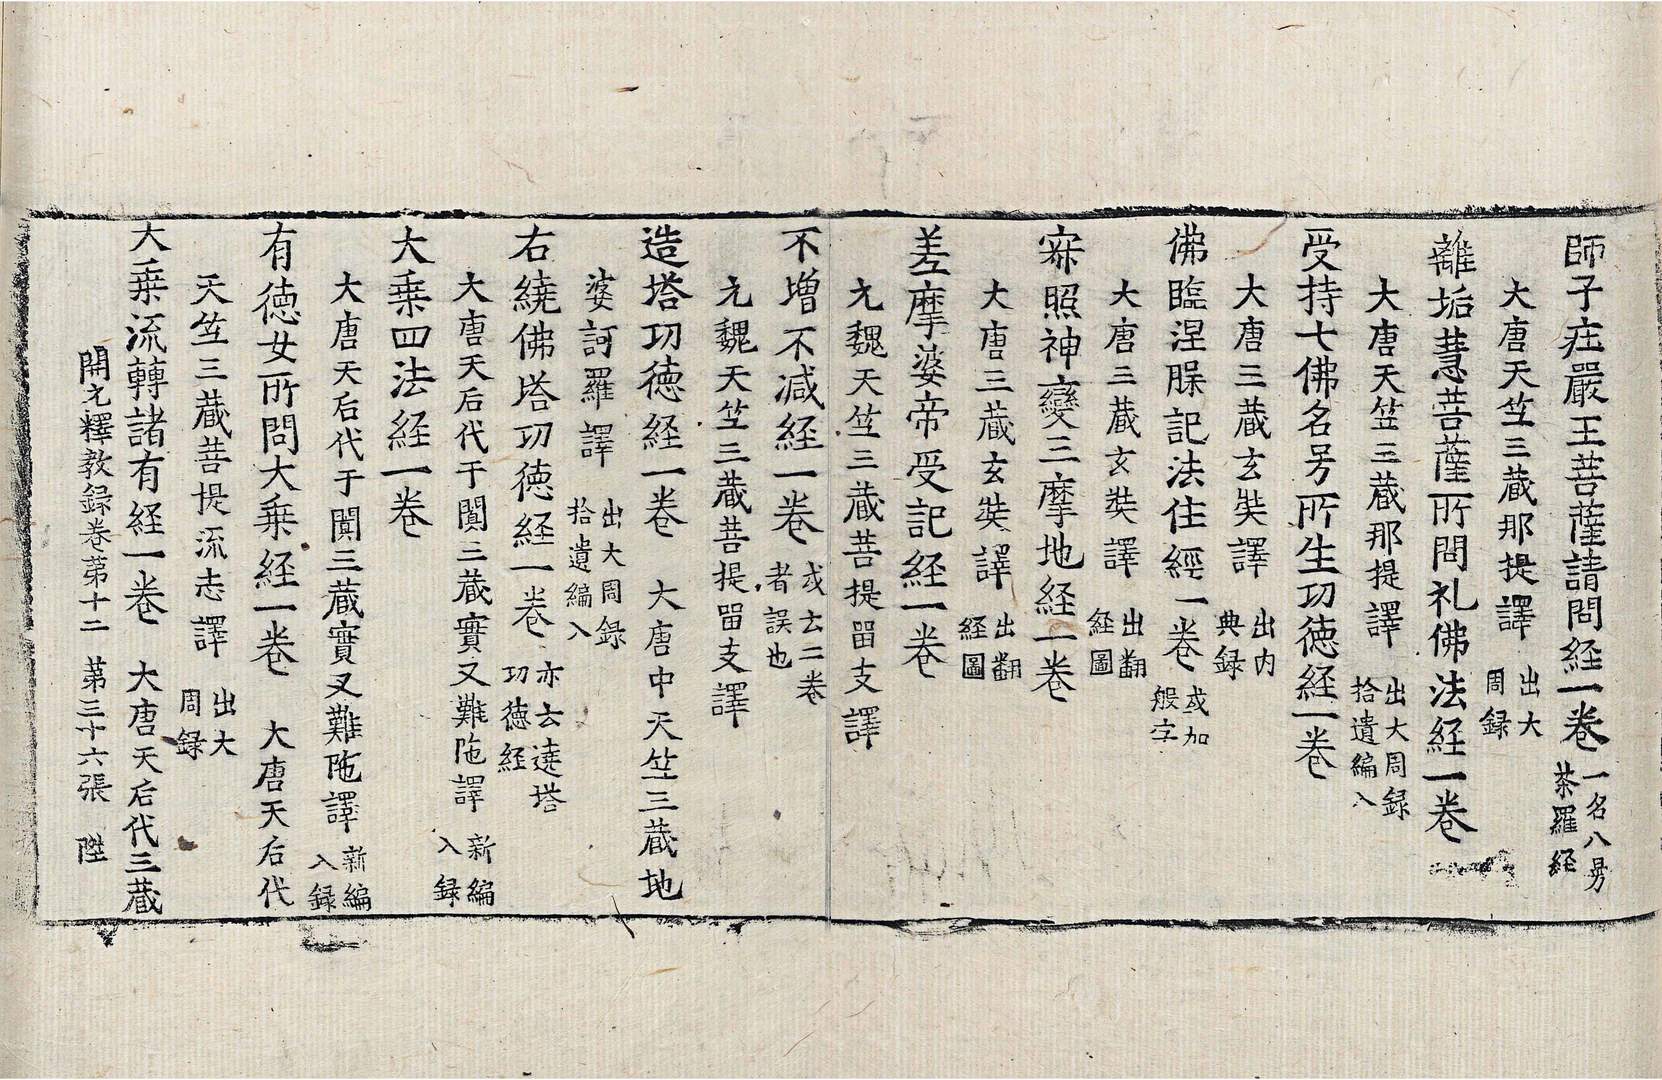 師子庄嚴王菩薩請問経一卷 一名八曼
茶羅経
大唐天竺三蔵那提譯 出大
周録
離垢慧菩薩所問礼佛法経一卷
大唐天竺三蔵那提譯 出大周録
拾遺編入
受持七佛名号所生功徳経一卷
大唐三蔵玄奘譯 出内
典録
佛臨涅槃記法住經一卷 或加
般字
大唐三蔵玄奘譯 出翻
経圖
寂照神變三摩地経一卷
大唐三蔵玄奘譯 出翻
経圖
差摩婆帝受記経一卷
元魏天竺三蔵菩提留支譯
不增不减経一卷 或云二卷
者誤也
元魏天竺三蔵菩提留支譯
造塔功徳経一卷 大唐中天竺三蔵地
婆訶羅譯 出大周録
拾遺編入
右繞佛塔功徳経一卷 亦云遶塔
功徳経
大唐天后代于闐三蔵實叉難陁譯 新編
入録
大乗四法経一卷
大唐天后代于闐三蔵實叉難陁譯 新編
入録
有徳女所問大乗経一卷 大唐天后代
天竺三蔵菩提流志譯 出大
周録
大乗流轉諸有経一卷 大唐天后代三蔵
開元釋教録卷苐十二 第三十六張 陛